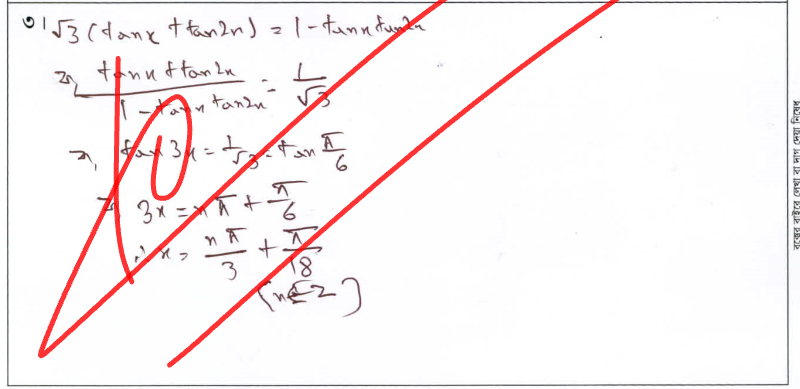 ৩। √3 (tanx + tan2x) = 1 - tanx tan2x
⇒ (tanx + tan2x) / (1 - tanx tan2x) = 1/√3
⇒ tan 3x = 1/√3 = tan π/6
⇒ 3x = nπ + π/6
∴ x = nπ/3 + π/18
[n ∈ Z]
বক্সের বাইরে লেখা বা দাগ দেয়া নিষেধ